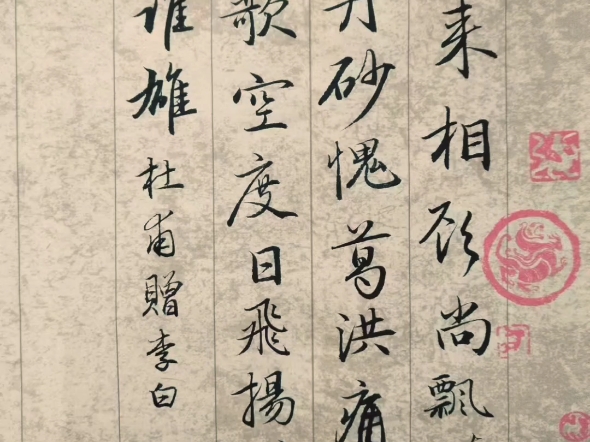 来相顾尚飘
丹砂愧葛洪痛
歌空度日飛揚
谁雄
杜甫贈李白